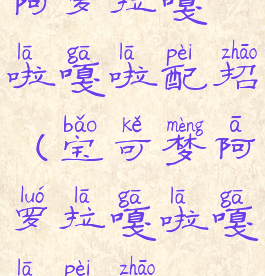 阿罗拉嘎
lā gā lā pèi zhāo
啦嘎啦配招
bǎo kě mèng ā
(宝可梦阿
luó lā gā lā gā
罗拉嘎啦嘎
lā pèi zhāo